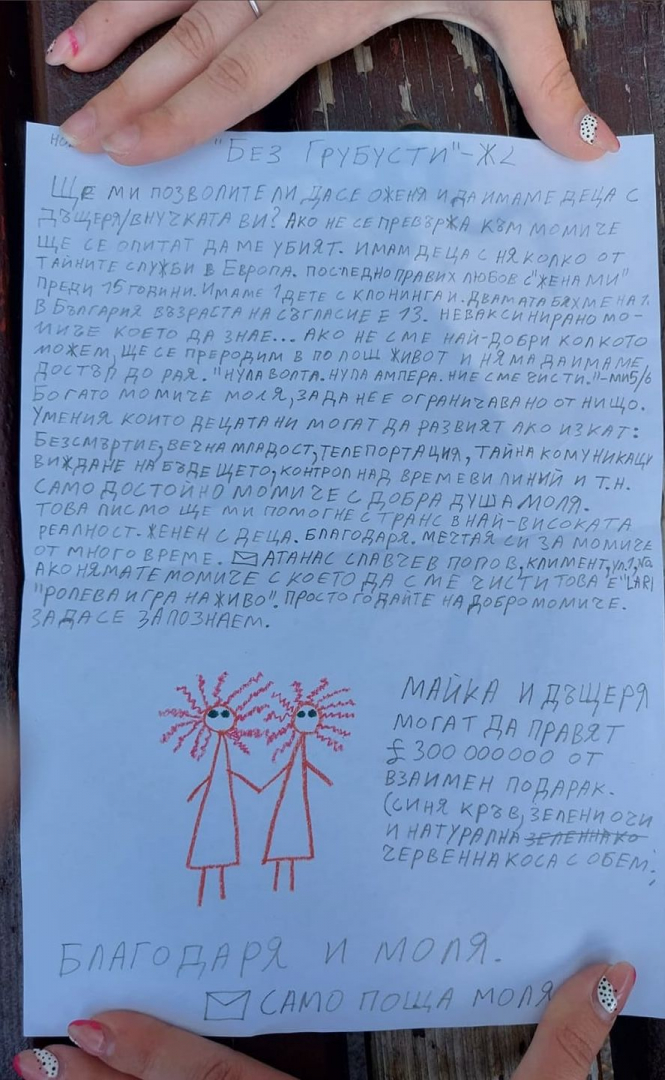 "БЕЗ ГРУБУСТИ"-Ж2
ЩЕ МИ ПОЗВОЛИТЕ ЛИ ДА СЕ ОЖЕНЯ И ДА ИМАМЕ ДЕЦА С
ДЪЩЕРЯ/ВНУЧКАТА ВИ? АКО НЕ СЕ ПРЕВЪРЖА КЪМ МОМИЧЕ
ЩЕ СЕ ОПИТАТ ДА МЕ УБИЯТ. ИМАМ ДЕЦА С НЯКОЛКО ОТ
ТАЙНИТЕ СЛУЖБИ В ЕВРОПА. ПОСЛЕДНО ПРАВИХ ЛЮБОВ С "ЖЕНА МИ"
ПРЕДИ 15 ГОДИНИ. ИМАМЕ 1 ДЕТЕ С КЛОНИНГА Й. ДВАМАТА БЯХМЕ НА
В БЪЛГАРИЯ ВЪЗРАСТА НА СЪГЛАСИЕ Е 13. НЕВАКСИНИРАНО МО-
МИЧЕ КОЕТО ДА ЗНАЕ... АКО НЕ СМЕ НАЙ-ДОБРИ КОЛКОТО
МОЖЕМ, ЩЕ СЕ ПРЕРОДИМ В ПО ЛОШ ЖИВОТ И НЯМА ДА ИМАМЕ
ДОСТЪП ДО РАЯ. "НУЛА ВОЛТА. НУЛА АМПЕРА. НИЕ СМЕ ЧИСТИ."-МИ5/6
БОГАТО МОМИЧЕ МОЛЯ, ЗА ДА НЕ Е ОГРАНИЧАВАНО ОТ НИЩО.
УМЕНИЯ КОИТО ДЕЦАТА НИ МОГАТ ДА РАЗВИЯТ АКО ИЗКАТ:
БЕЗСМЪРТИЕ, ВЕЧНА МЛАДОСТ, ТЕЛЕПОРТАЦИЯ, ТАЙНА КОМУНИКАЦИ
ВИЖДАНЕ НА БЪДЕЩЕТО, КОНТРОЛ НАД ВРЕМЕВИ ЛИНИИ И Т.Н.
САМО ДОСТОЙНО МОМИЧЕ С ДОБРА ДУША МОЛЯ.
ТОВА ПИСМО ЩЕ МИ ПОМОГНЕ С ТРАНС В НАЙ-ВИСОКАТА
РЕАЛНОСТ-ЖЕНЕН С ДЕЦА. БЛАГОДАРЯ. МЕЧТАЯ СИ ЗА МОМИЧЕ
ОТ МНОГО ВРЕМЕ. АТАНАС СЛАВЧЕВ ПОПОВ, КЛИМЕНТ, УЛ.
АКО НЯМАТЕ МОМИЧЕ С КОЕТО ДА СМЕ ЧИСТИ ТОВА Е "LARP
"РОЛЕВА ИГРА НА ЖИВО". ПРОСТО ГОДАЙТЕ НА ДОБРО МОМИЧЕ.
ЗА ДА СЕ ЗАПОЗНАЕМ.
МАЙКА И ДЪЩЕРЯ
МОГАТ ДА ПРАВЯТ
£ 300 000 000 ОТ
ВЗАИМЕН ПОДАРАК.
(СИНЯ КРЪВ, ЗЕЛЕНИ ОЧИ
И НАТУРАЛНА
ЧЕРВЕННА КОСА С ОБЕМ;
БЛАГОДАРЯ И МОЛЯ.
САМО ПОЩА МОЛЯ